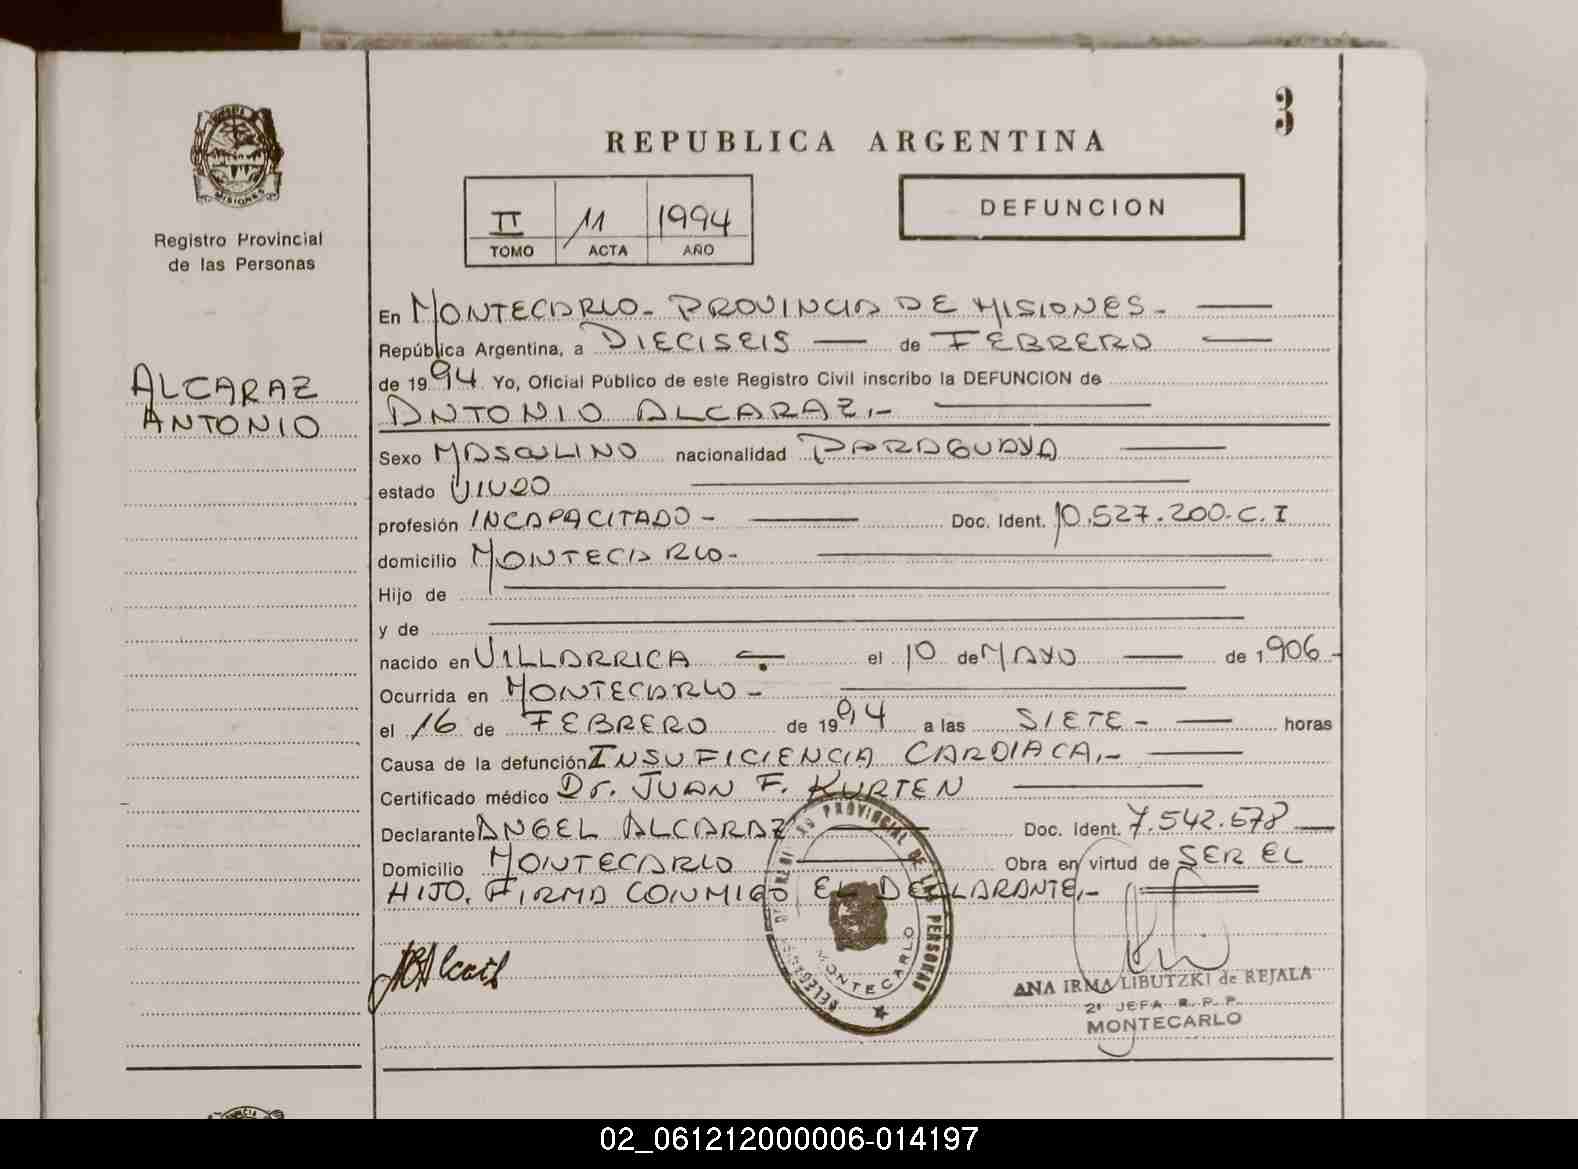 3
REPUBLICA ARGENTINA
PROVINCIA DE
MISIONES
Registro Provincial
de las Personas
II 11 1994
TOMO ACTA AÑO
DEFUNCION
ALCARAZ
ANTONIO
En MONTECARLO- PROVINCIA DE MISIONES-
República Argentina, a DIECISEIS de FEBRERO
de 1994 Yo, Oficial Público de este Registro Civil inscribo la DEFUNCION de
ANTONIO ALCARAZ.-
Sexo MASCULINO nacionalidad PARAGUAYA
estado VIUDO
profesión INCAPACITADO - Doc. Ident. 10.527.200-C.I
domicilio MONTECARLO-
Hijo de
y de
nacido en VILLARRICA el 10 de MAYO de 1906-
Ocurrida en MONTECARLO-
el 16 de FEBRERO de 1994 a las SIETE- horas
Causa de la defunción INSUFICIENCIA CARDIACA.-
Certificado médico Dr. JUAN F. KURTEN
Declarante ANGEL ALCARAZ Doc. Ident. 7.542.678
Domicilio MONTECARLO Obra en virtud de SER EL
HIJO. FIRMA CONMIGO EL DECLARANTE.-
DELEGACION DE REGISTRO PROVINCIAL DE LAS PERSONAS
MONTECARLO
ANA IRMA LIBUTZKI de REJALA
2ª JEFA R. P. P.
MONTECARLO
02_061212000006-014197